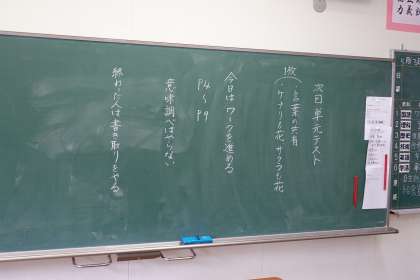 次回 単元テスト
1枚
・言葉の共有
・ケナリも花、サクラも花
今日はワークを進める
P4〜P9
意味調べはやらない
終わった人は書き取りをやる